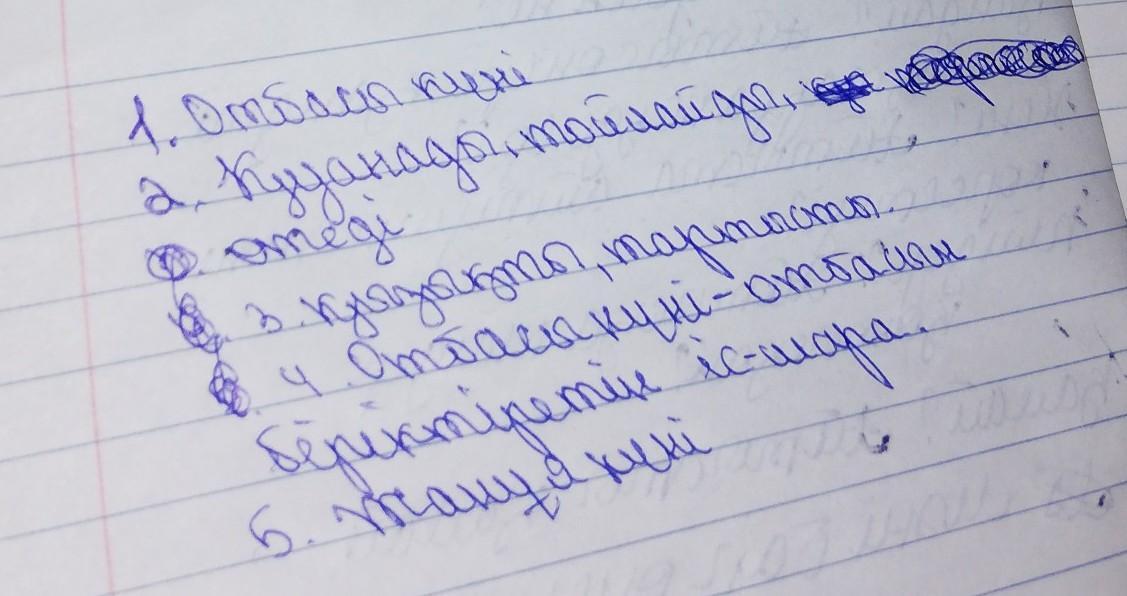 1. Отбасы күні
2. Қуанады, тойлайды,
өтеді
3. қызықты, тартысты.
4. Отбасы күні - отбасын
беріктіретін іс-шара.
5. Жанұя күні